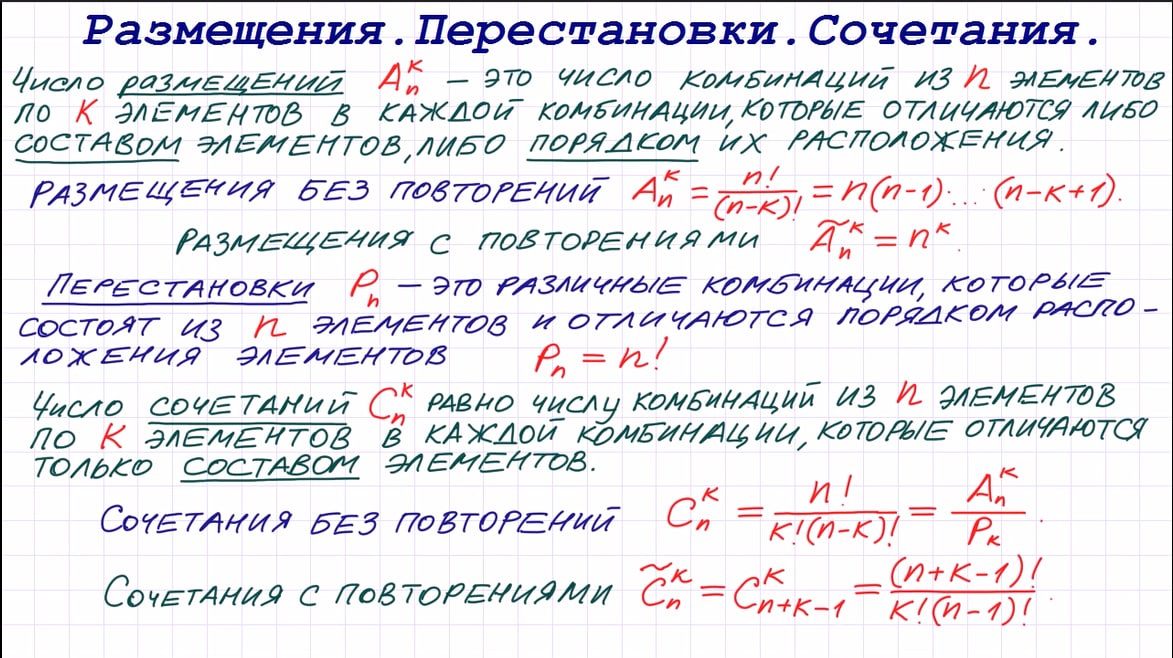 Размещения. Перестановки. Сочетания.
Число размещений Aₙᵏ — это число комбинаций из n элементов
по k элементов в каждой комбинации, которые отличаются либо
составом элементов, либо порядком их расположения.
Размещения без повторений Aₙᵏ = n!/(n-k)! = n(n-1)·...·(n-k+1).
Размещения с повторениями Ãₙᵏ = nᵏ.
Перестановки Pₙ — это различные комбинации, которые
состоят из n элементов и отличаются порядком распо-
ложения элементов Pₙ = n!
Число сочетаний Cₙᵏ равно числу комбинаций из n элементов
по k элементов в каждой комбинации, которые отличаются
только составом элементов.
Сочетания без повторений Cₙᵏ = n!/(k!(n-k)!) = Aₙᵏ/Pₖ.
Сочетания с повторениями C̃ₙᵏ = Cᵏₙ₊ₖ₋₁ = (n+k-1)!/(k!(n-1)!).